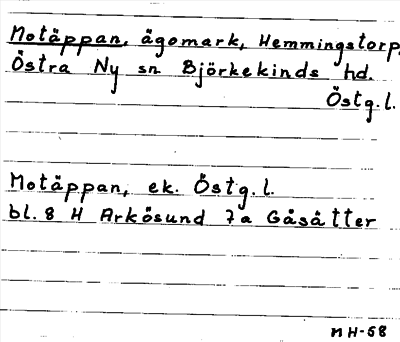 Motäppan, ägomark, Hemmingstorp,
Östra Ny sn Björkekinds hd.
Östg.l.
Motäppan, ek. Östg.l.
bl. 8 H Arkösund 7a Gåsätter
MH-68